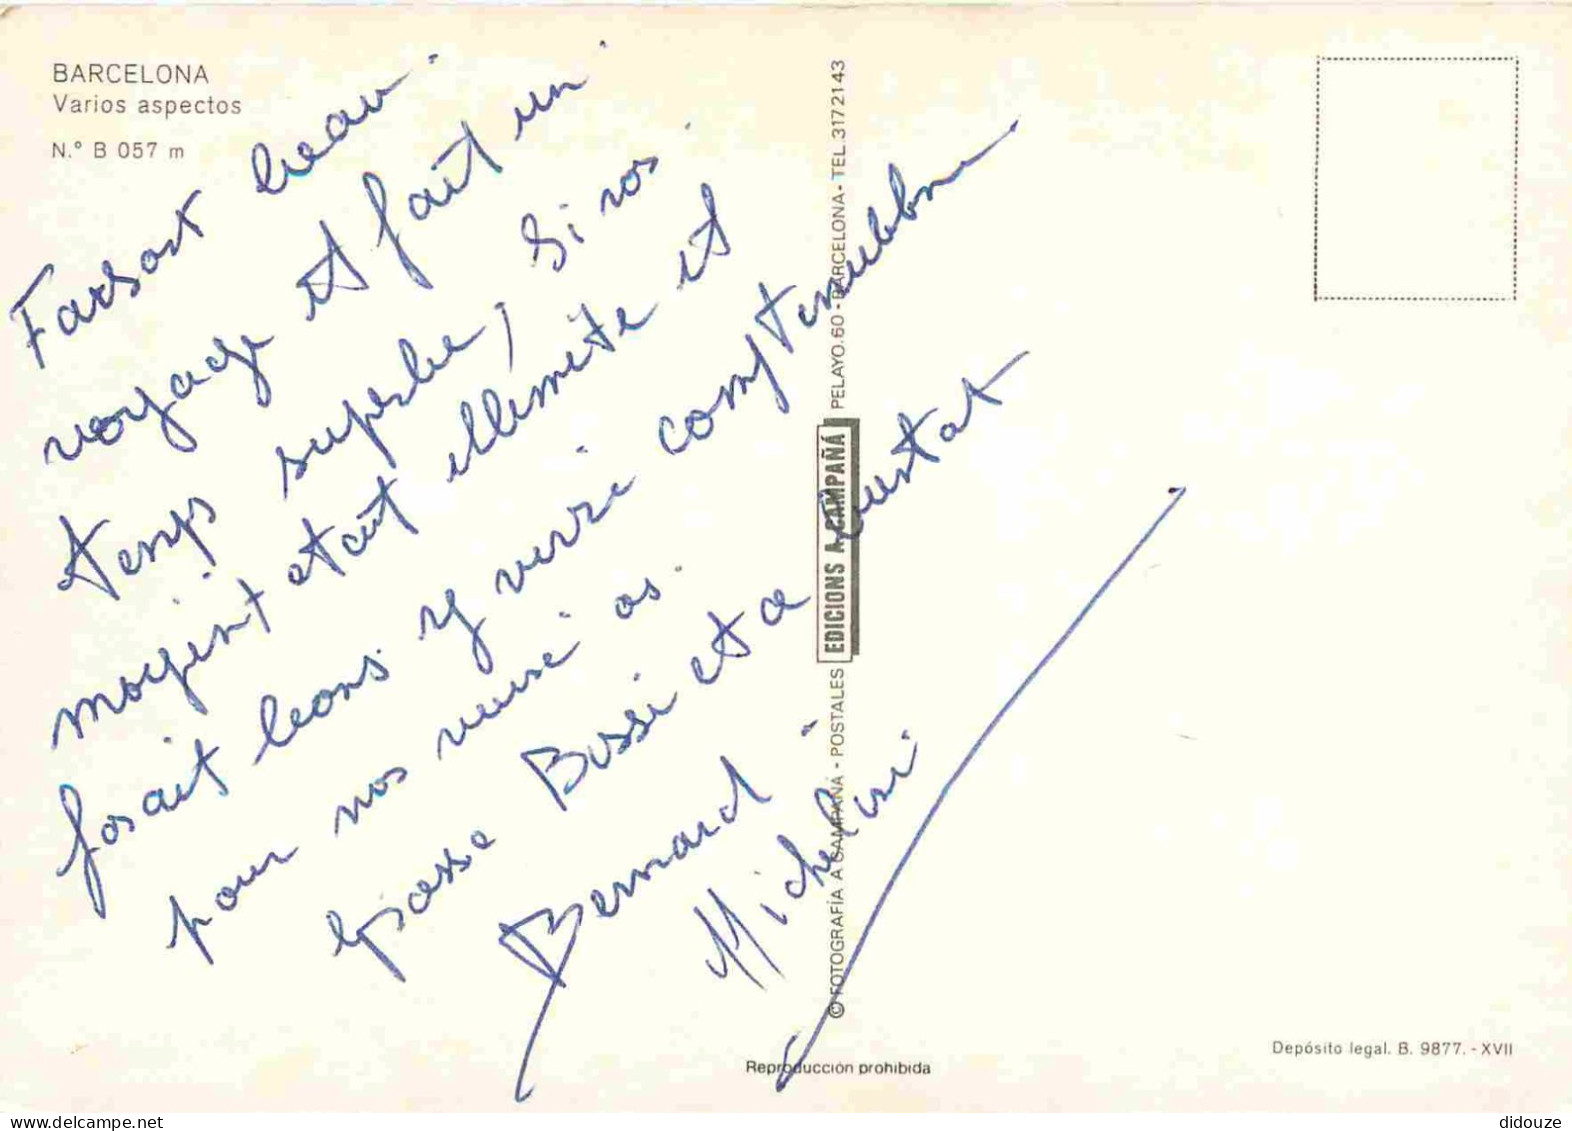 BARCELONA
Varios aspectos
N.° B 057 m
Farsont beau
voyage et fait un
temps superbe, Si vos
moyent etait illimite et
forait bons y verri comptenubbm
pour nos as.
grosse Bissi et a Lustat
Bernard
Michelini
© FOTOGRAFÍA A CAMPAÑA - POSTALES EDICIONS A. CAMPAÑÁ PELAYO. 60 - BARCELONA - TEL. 3172143
Reproducción prohibida
Depósito legal. B. 9877. - XVII
didouze